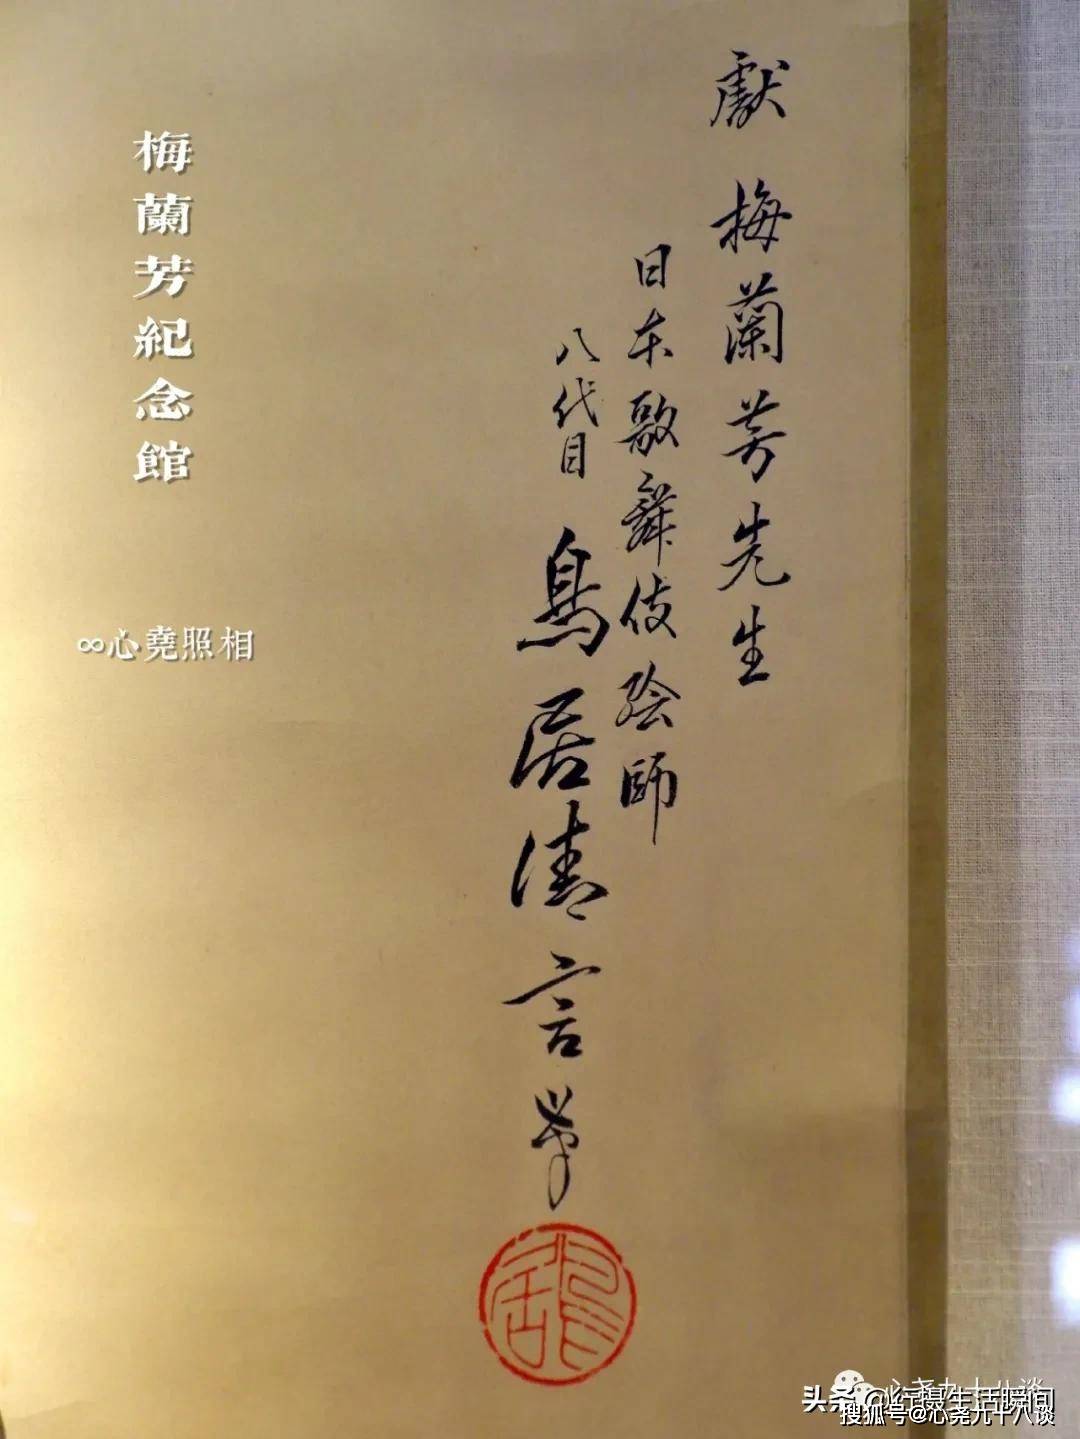 獻 梅蘭芳先生
日本歌舞伎絵師
八代目
鳥居清言筆
梅蘭芳紀念館
∞心堯照相
头条@行摄生活瞬间
搜狐号@心尧九十八谈